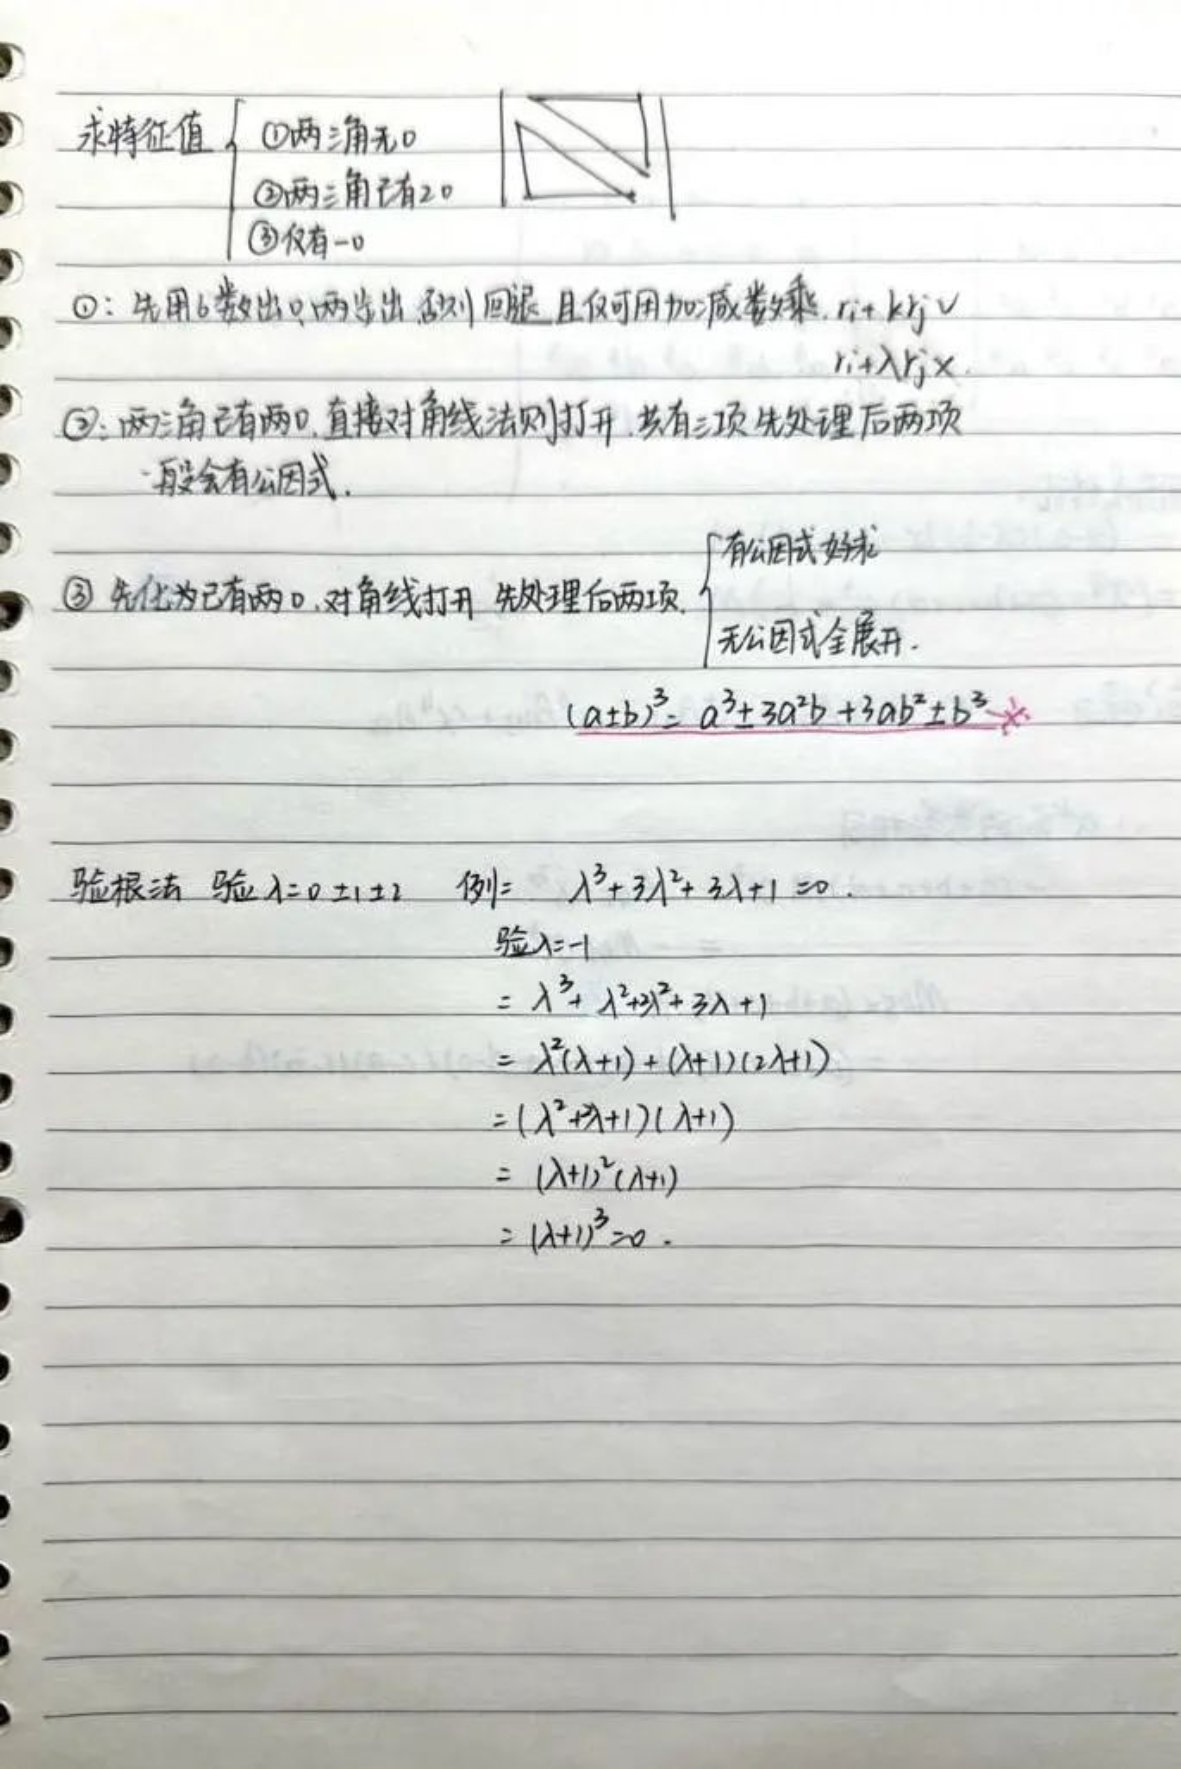 求特征值 ①两三角无0
②两三角已有20
③仅有一0
①: 先用6数出0,两步出,否则回退 且仅可用加减数乘. ri+krj√
ri+λrj×.
②: 两三角已有两0.直接对角线法则打开.共有三项 先处理后两项
一般会有公因式.
③ 先化为已有两0.对角线打开 先处理后两项. 有公因式好求
无公因式全展开.
(a±b)³= a³±3a²b+3ab²±b³
验根法 验λ=0 ±1 ±2 例= λ³+3λ²+3λ+1=0.
验λ=-1
= λ³+ λ²+2λ²+3λ+1
= λ²(λ+1)+(λ+1)(2λ+1)
=(λ²+2λ+1)(λ+1)
= (λ+1)²(λ+1)
= (λ+1)³=0.